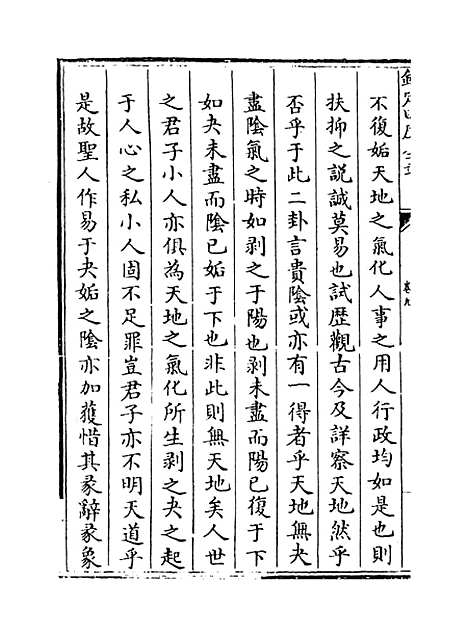 欽定四庫全書
卷九
不復姤天地之氣化人事之用人行政均如是也則
扶抑之説誠莫易也試歴觀古今及詳察天地然乎
否乎于此二卦言貴陰或亦有一得者乎天地無夬
盡陰氣之時如剥之于陽也剥未盡而陽已復于下
如夬未盡而陰已姤于下也非此則無天地矣人世
之君子小人亦俱為天地之氣化所生剥之夬之起
于人心之私小人固不足罪豈君子亦不明天道乎
是故聖人作易于夬姤之陰亦加䕶惜其彖辭彖象